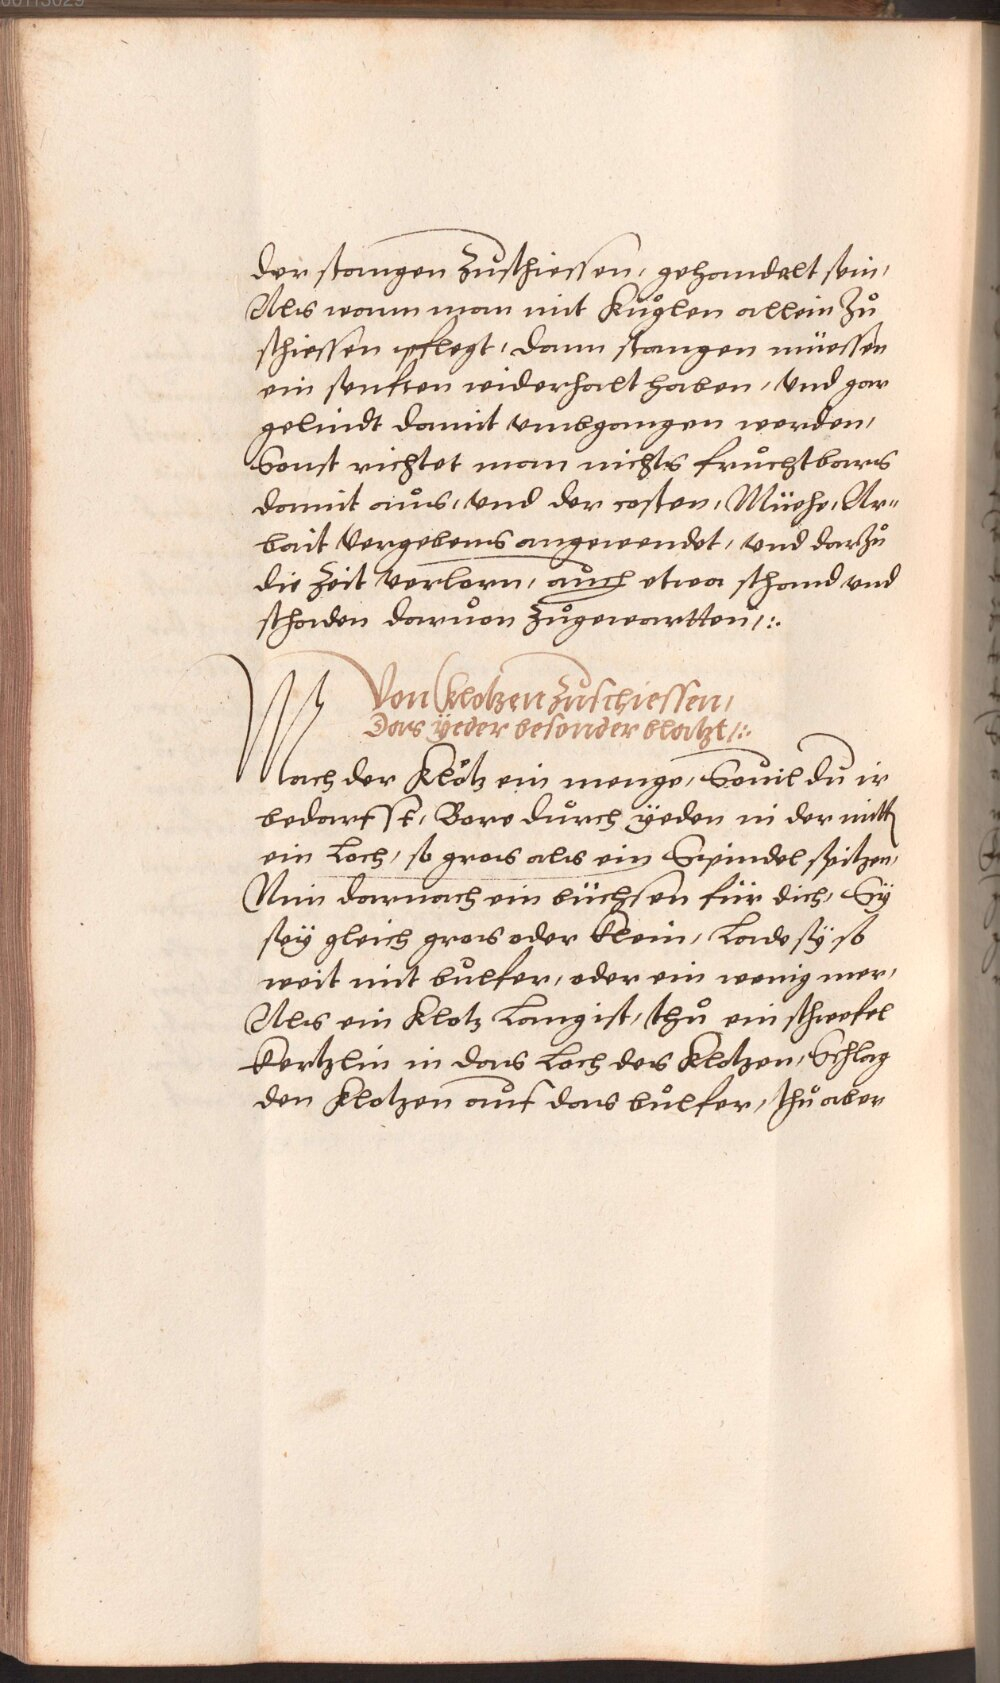 der stangen zuschiessen, gehandelt sein,
Als wann man mit Kuglen allein zů
schiessen pflegt, dann stangen müessen
ein senften widerhalt haben, vnd gar
gelindt damit vmbgangen werden,
Sonst richtet man nichts fruchtbars
damit aus, vnd der costen, Müehe, Ar-
bait vergebens angewendet, vnd darzů
die Zeit verlorn, auch etwa schand vnd
schaden daruon zůgewartten /:.
Von Klotzen zuschiessen,
Das yeder besonder blatzt /:.
Mach der Klötz ein menge, Souil du ir
bedarfst, Bore durch yeden in der mitt
ein Loch, so gros als ein Spindel spitzen,
Nim darnach ein büchsen für dich, Sÿ
seÿ gleich gros oder klein, Lade sÿ so
weit mit bulfer, oder ein wenig mer,
Als ein Klotz Lang ist, thů ein schwefel
kertzlin in das Loch des Klotzen, Schlag
den Klotzen auf das bulfer, thů aber